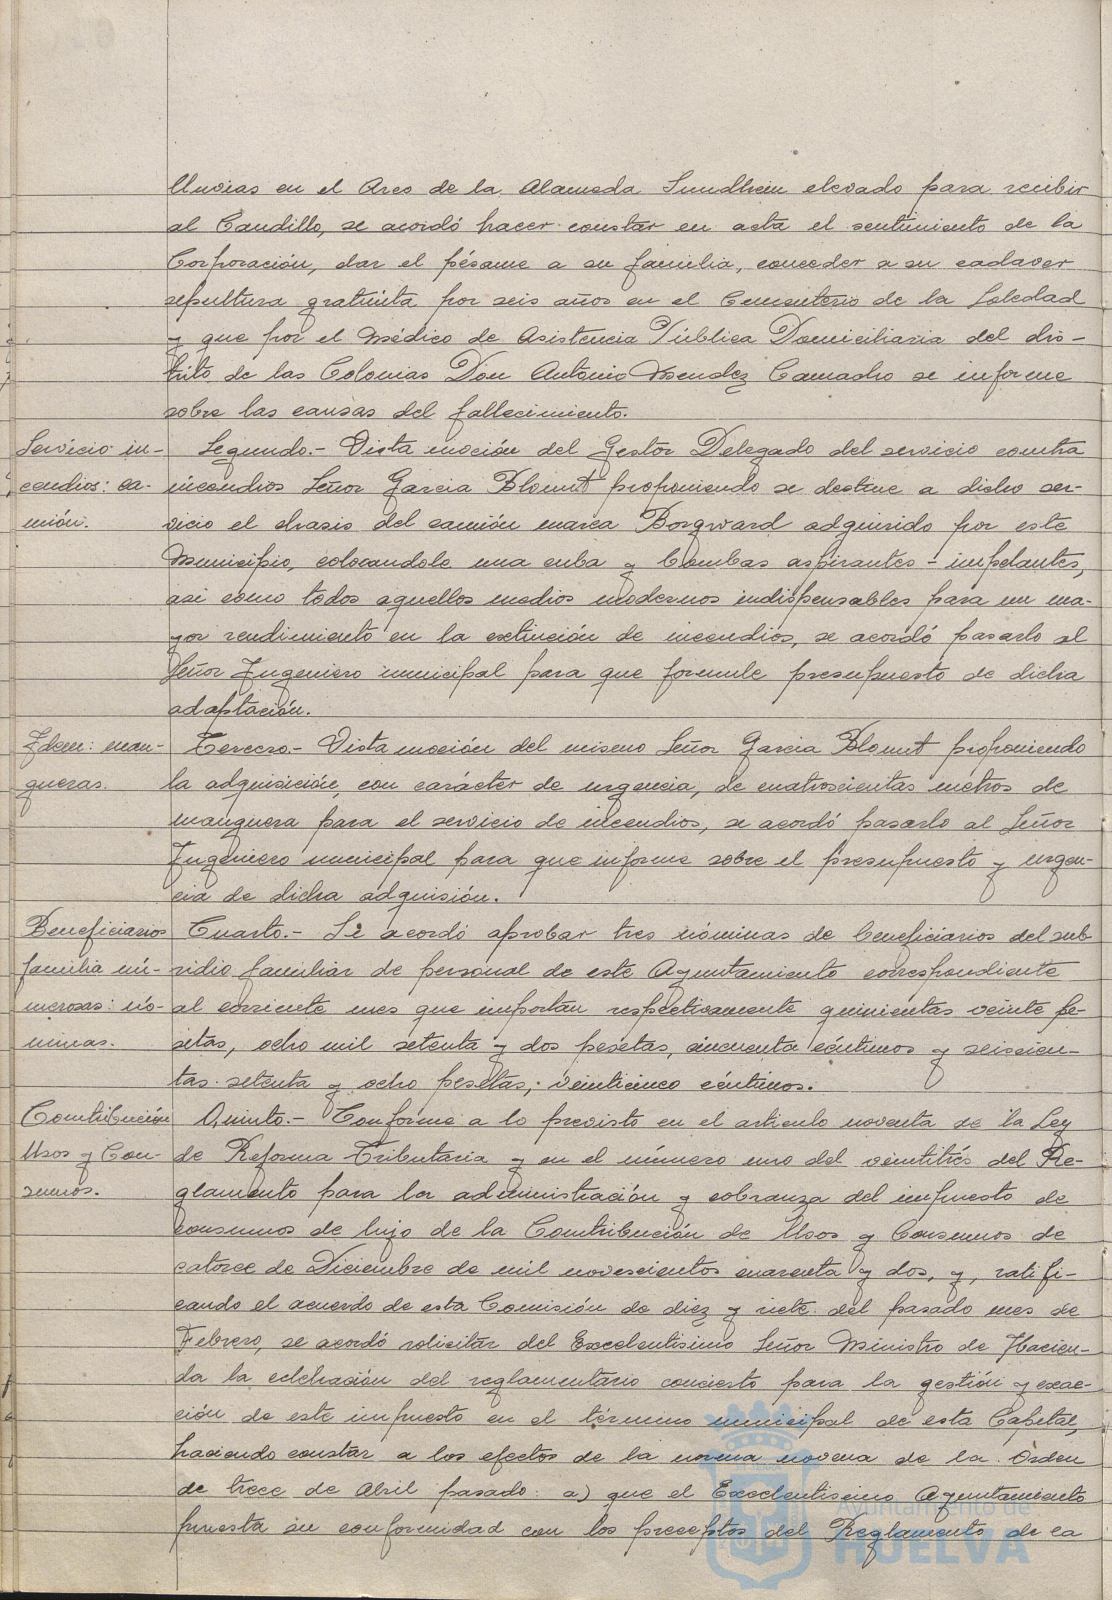 lluvias en el Arco de la Alameda Sundhein elevado para recibir
al Caudillo, se acordó hacer constar en acta el sentimiento de la
Corporación, dar el pésame a su familia, conceder a su cadaver
sepultura gratuita por seis años en el Cementerio de la Soledad
y que por el Médico de Asistencia Pública Domiciliaria del dis-
trito de las Colonias Don Antonio Mendez Camacho se informe
sobre las causas del fallecimiento.
Servicio in-
cendios: ca-
mión.
Segundo.- Vista moción del Gestor Delegado del servicio contra
incendios Señor Garcia proponiendo se destine a dicho ser-
vicio el chasis del camión marca Borgward adquirido por este
Municipio, colocandole una cuba y bombas aspirantes-impelantes,
asi como todos aquellos medios modernos indispensables para un ma-
yor rendimiento en la extinción de incendios, se acordó pasarlo al
Señor Ingeniero municipal para que formule presupuesto de dicha
adaptación.
Idem: man-
gueras.
Tercero.- Vista moción del mismo Señor Garcia proponiendo
la adquisición, con carácter de urgencia, de cuatroscientas metros de
manguera para el servicio de incendios, se acordó pasarlo al Señor
Ingeniero municipal para que informe sobre el presupuesto y urgen-
cia de dicha adquisión.
Beneficiarios
familia nu-
merosas: nó-
minas.
Cuarto.- Se acordó aprobar tres nóminas de beneficiarios del sub-
sidio familiar de personal de este Ayuntamiento correspondiente
al corriente mes que importan respectivamente quinientas veinte pe-
setas, ocho mil setenta y dos pesetas, cincuenta céntimos y seiscien-
tas setenta y ocho pesetas, veinticinco céntimos.
Contribución
Usos y Con-
sumos.
Quinto.- Conforme a lo previsto en el artículo noventa de la Ley
de Reforma Tributaria y en el número uno del veintitrés del Re-
glamento para la administración y cobranza del impuesto de
consumos de lujo de la Contribución de Usos y Consumos de
catorce de Diciembre de mil novescientos cuarenta y dos, y, ratifi-
cando el acuerdo de esta Comisión de diez y siete del pasado mes de
Febrero, se acordó solicitar del Excelentísimo Señor Ministro de Hacien-
da la celebración del reglamentario concierto para la gestión y exac-
ción de este impuesto en el término municipal de esta Capital,
haciendo constar a los efectos de la norma novena de la Orden
de trece de Abril pasado: a) que el Excelentísimo Ayuntamiento
presta su conformidad con los preceptos del Reglamento de la
Ayuntamiento de
HUELVA